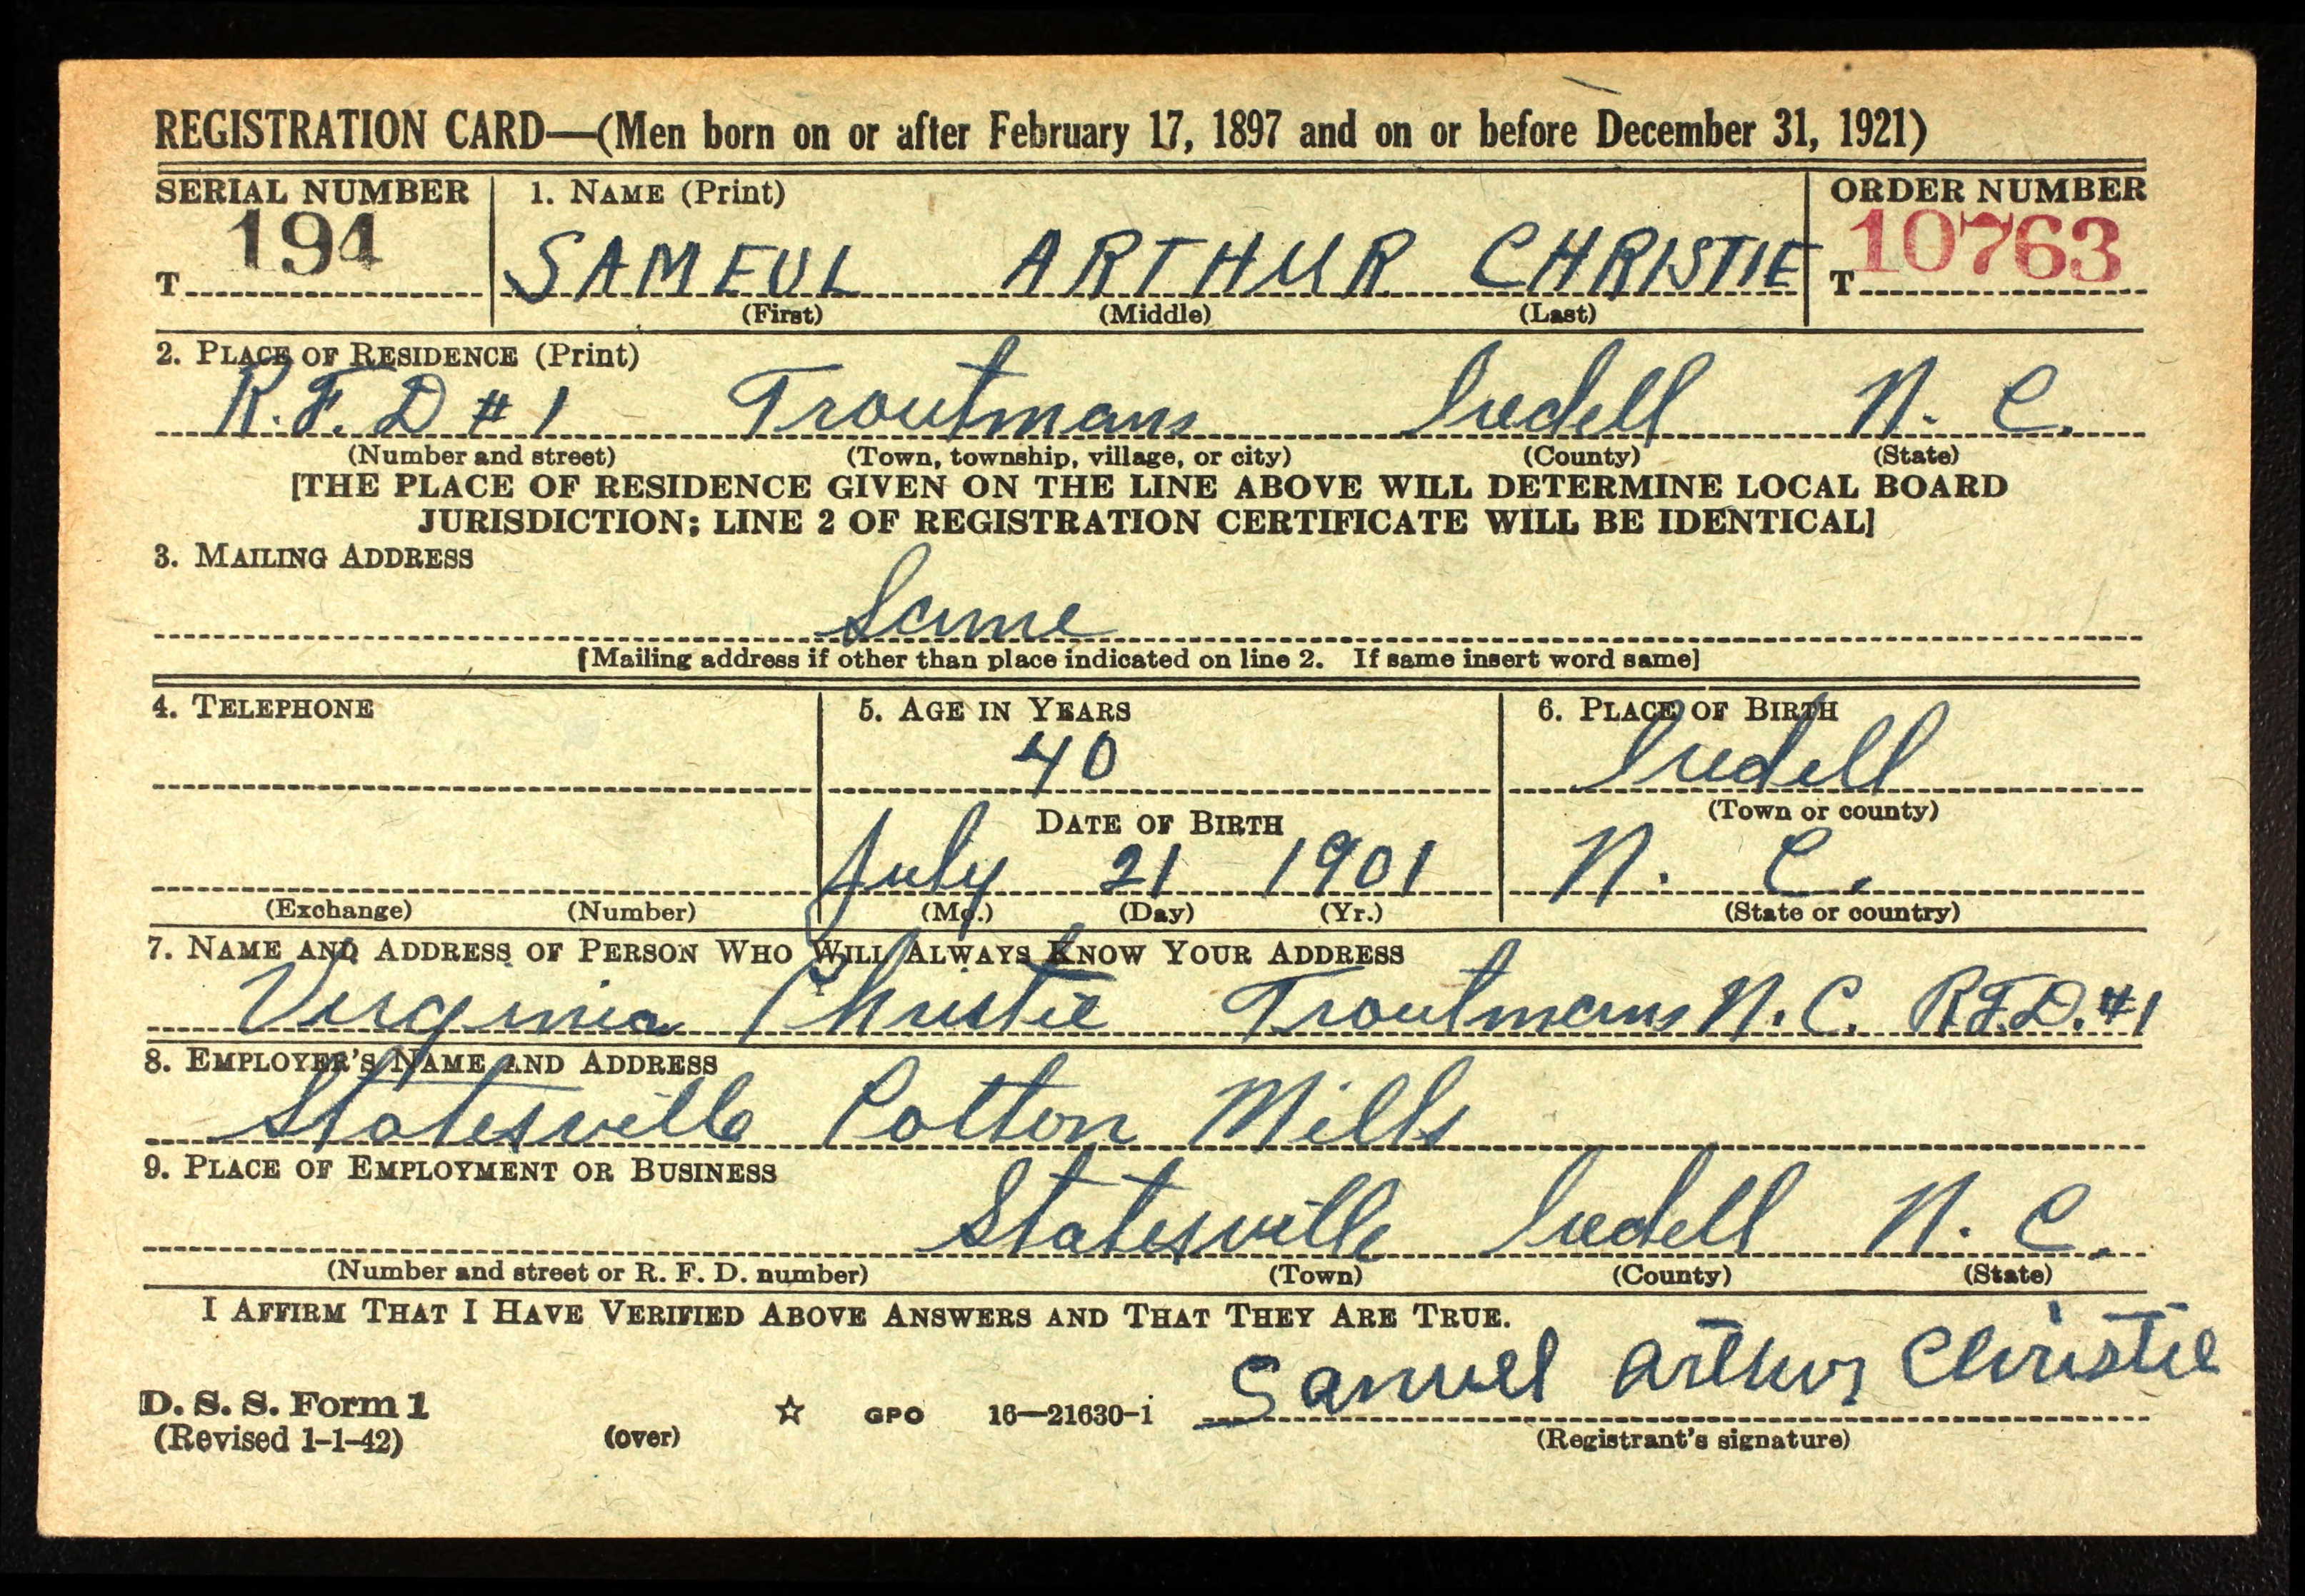 REGISTRATION CARD—(Men born on or after February 17, 1897 and on or before December 31, 1921)
SERIAL NUMBER 1. NAME (Print) ORDER NUMBER
T 194 SAMEUL ARTHUR CHRISTIE T 10763
(First) (Middle) (Last)
2. PLACE OF RESIDENCE (Print)
R.F.D #1 Troutmans Iredell N. C.
(Number and street) (Town, township, village, or city) (County) (State)
[THE PLACE OF RESIDENCE GIVEN ON THE LINE ABOVE WILL DETERMINE LOCAL BOARD
JURISDICTION; LINE 2 OF REGISTRATION CERTIFICATE WILL BE IDENTICAL]
3. MAILING ADDRESS
Same
[Mailing address if other than place indicated on line 2. If same insert word same]
4. TELEPHONE 5. AGE IN YEARS 6. PLACE OF BIRTH
40 Iredell
DATE OF BIRTH (Town or county)
July 21 1901 N. C.
(Exchange) (Number) (Mo.) (Day) (Yr.) (State or country)
7. NAME AND ADDRESS OF PERSON WHO WILL ALWAYS KNOW YOUR ADDRESS
Virginia Christie Troutmans N. C. R.F.D. #1
8. EMPLOYER'S NAME AND ADDRESS
Statesville Cotton Mills
9. PLACE OF EMPLOYMENT OR BUSINESS
Statesville Iredell N. C.
(Number and street or R. F. D. number) (Town) (County) (State)
I AFFIRM THAT I HAVE VERIFIED ABOVE ANSWERS AND THAT THEY ARE TRUE.
Samuel Arthur Christie
D. S. S. Form 1
(Revised 1-1-42) (over) ☆ GPO 16—21630-1 (Registrant's signature)